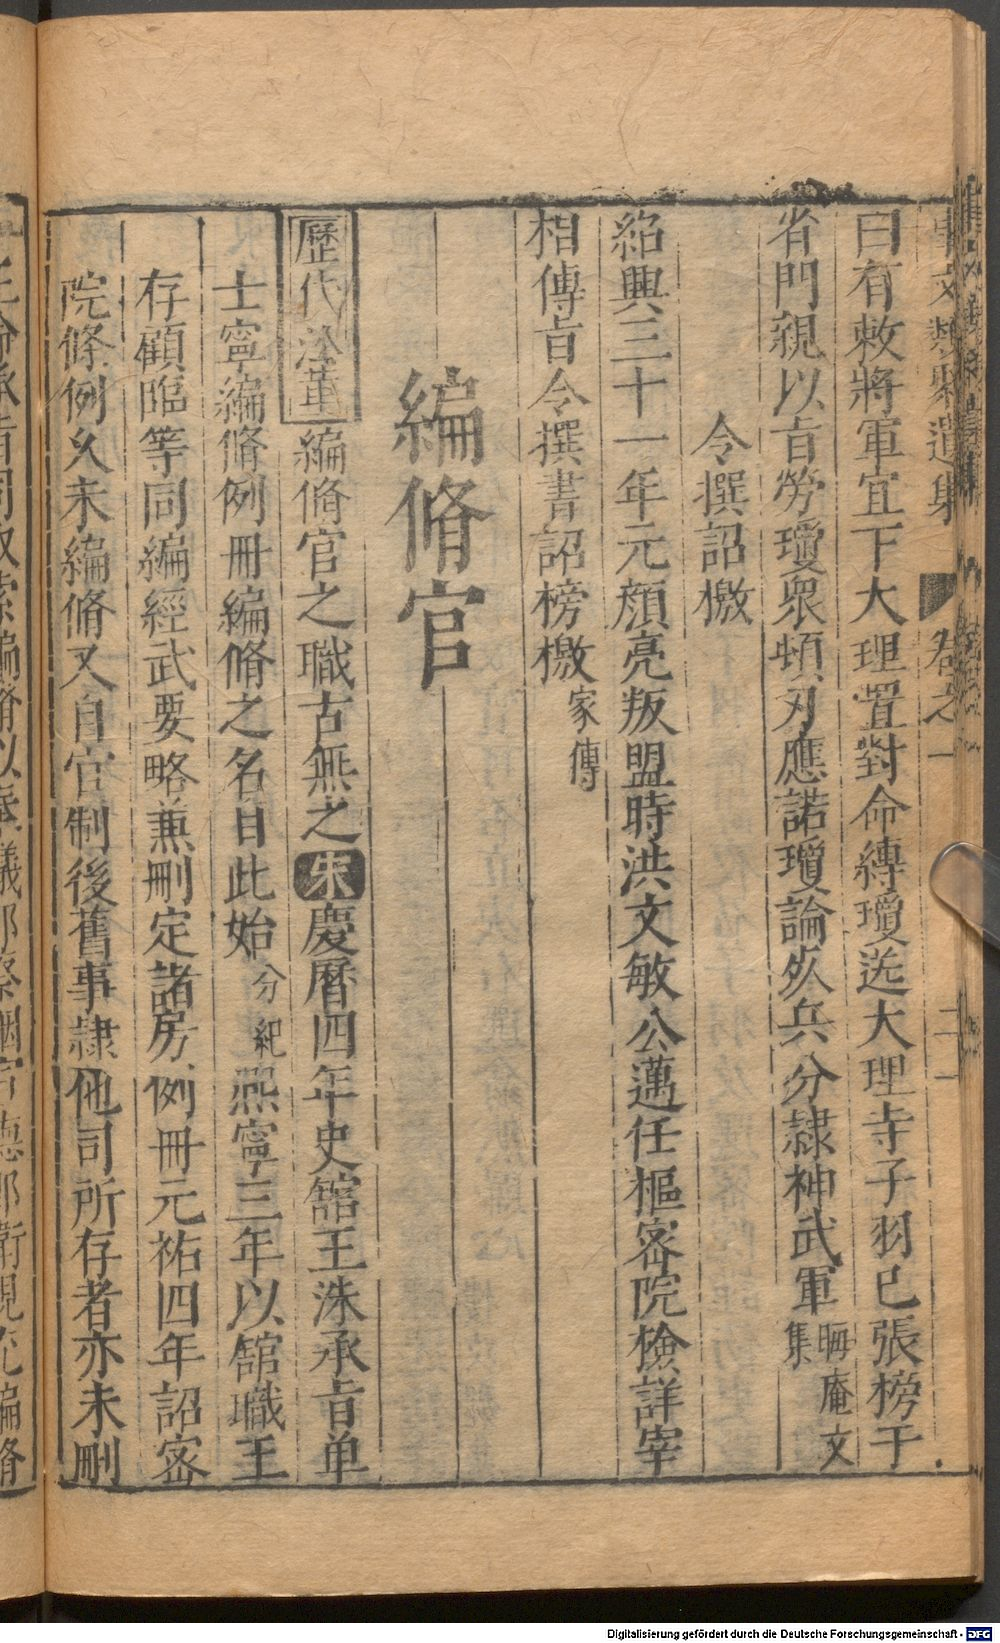 事文類聚遺集　卷之一　二一
曰有敕將軍宜下大理置對命縛瓊送大理寺子羽已張榜于
省門親以㫖勞瓊衆頓刃應諾瓊論死兵分隷神武軍晦庵文集
令撰詔檄
紹興三十一年元顔亮叛盟時洪文敏公邁任樞宻院檢詳宰
相傳㫖令撰書詔榜檄家傳
編脩官
歷代㳂革編脩官之職古無之宋慶曆四年史舘王洙承㫖单
士寧編脩例冊編脩之名自此始分紀熙寧三年以舘職王
存顧臨等同編經武要略兼刪定諸房例冊元祐四年詔宻
院條例久未編脩又自官制後舊事隷他司所存者亦未刪
Digitalisierung gefördert durch die Deutsche Forschungsgemeinschaft - DFG